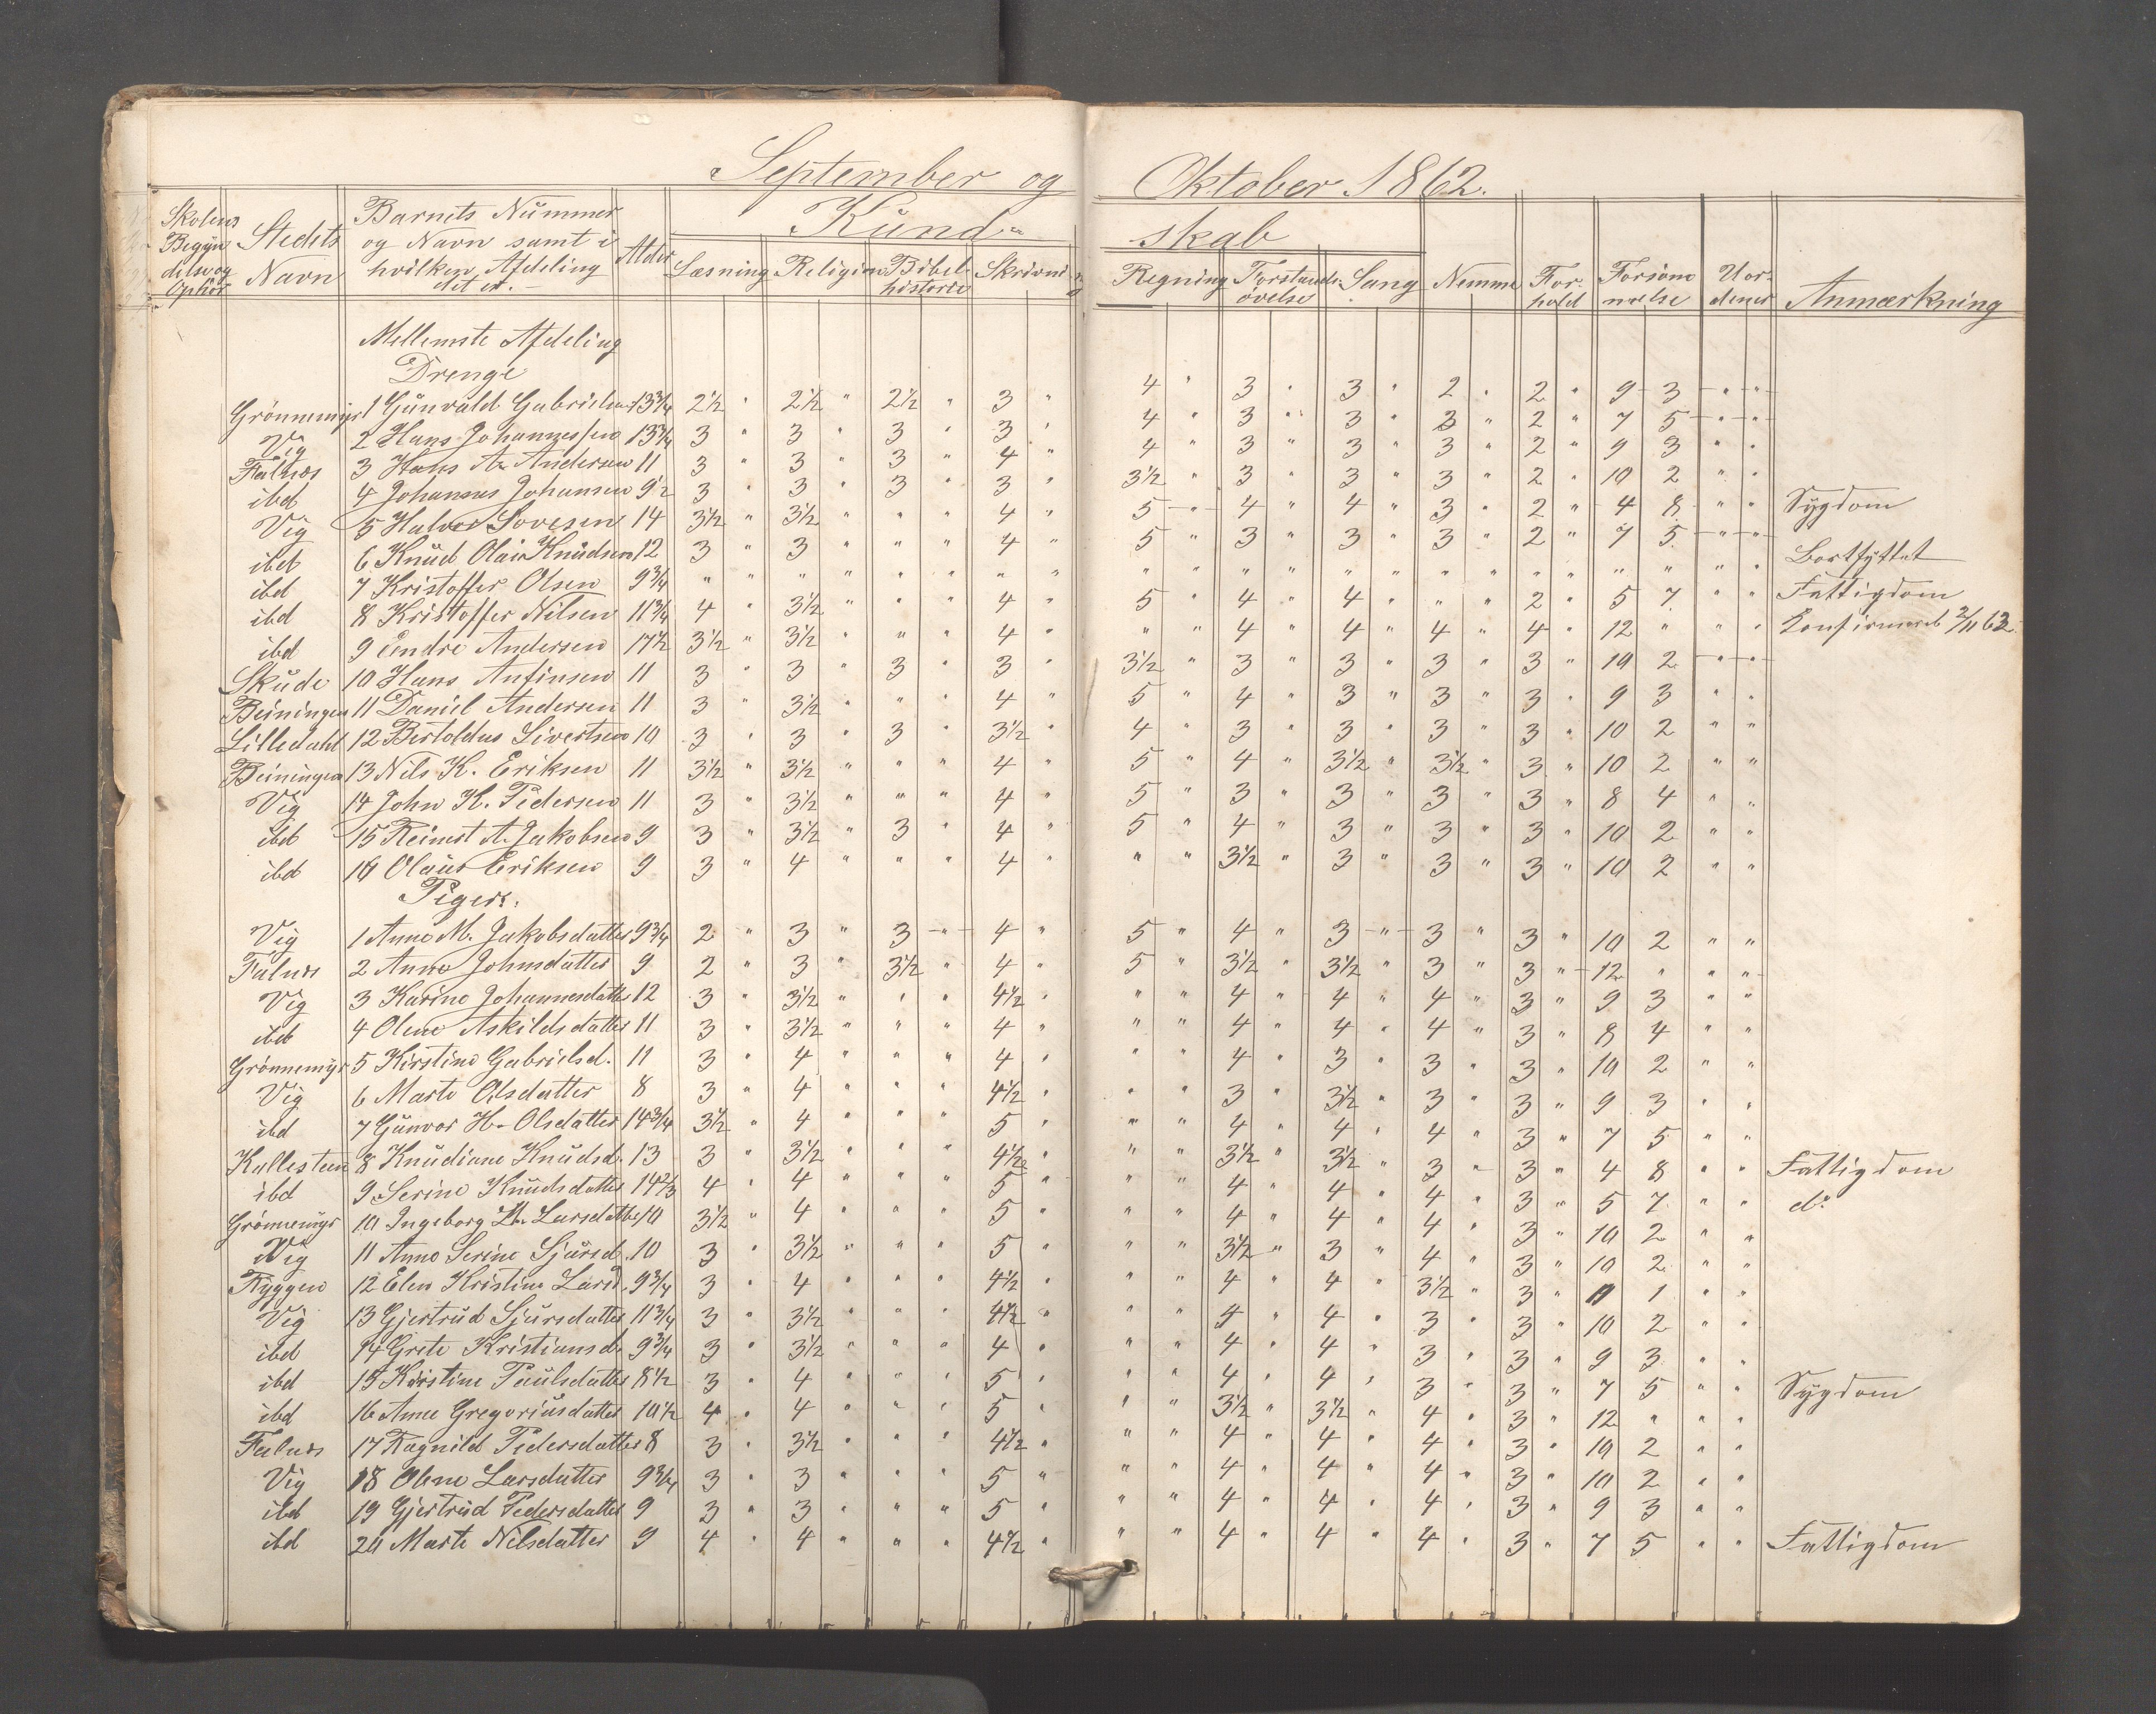 September og Oktober 1862.
Skolens Begyndelse og Ophör | Stedets Navn | Barnets Nummer og Navn samt i hvilken Afdeling det er. | Alder | Kund- skab | Læsning | Religion | Bibelhistorie | Skrivni | Regning | Forstandsövelse | Sang | Nemme | Forhold | Forsömmelse | Uordener | Anmærkning
Mellemste Afdeling
Drenge
Grönnemyr 1 Günvald Gabrielsen 13 3/4 2 1/2 " 2 1/2 " 2 1/2 " 3 " 4 " 3 " 3 " 2 " 2 " 9 3 " "
Vig 2 Hans Johannessen 13 3/4 3 " 3 " 3 " 3 " 4 " 3 " 3 " 3 " 2 " 7 5 " "
Falnæs 3 Hans A. Andersen 11 3 " 3 " 3 " 4 " 4 " 3 " 3 " 3 " 2 " 9 3 " "
ibd 4 Johannes Johansen 9 1/2 3 " 3 " 3 " 3 " 3 1/2 " 3 " 3 " 3 " 2 " 10 2 " "
Vig 5 Halvor Sovesen 14 3 1/2 " 3 1/2 " " " 4 " 5 " 4 " 4 " 3 " 2 " 4 8 " " Sygdom
ibd 6 Knüd Olai Knüdsen 12 3 " 3 " " " 4 " 5 " 3 " 3 " 3 " 2 " 7 5 " "
ibd 7 Kristoffer Olsen 9 3/4 " " " " " " " " " " " " " " " " " " " " " " Bortflyttet
ibd 8 Kristoffer Nilsen 11 3/4 4 " 3 1/2 " " " 4 " 5 " 4 " 4 " " " 2 " 5 7 " " Fattigdom
ibd 9 Endre Andersen 17 1/2 3 1/2 " 3 1/2 " " " 4 " " " 4 " 4 " 4 " 4 " 12 " " " Konfirmered 2/11 62
Skude 10 Hans Anfinsen 11 3 " 3 " 3 " 3 " 3 1/2 " 3 " 3 " 3 " 3 " 10 2 " "
Beiningen 11 Daniel Andersen 11 3 " 3 1/2 " " " 4 " 5 " 4 " 3 " 3 " 3 " 9 3 " "
Lilledahl 12 Bertoldus Sivertsen 10 3 " 3 " 3 " 3 1/2 " 4 " 3 " 3 " 3 " 3 " 10 2 " "
Beiningen 13 Nils K. Eriksen 11 3 1/2 " 3 1/2 " " " 4 " 5 " 4 " 3 1/2 " 3 1/2 " 3 " 10 2 " "
Vig 14 John K. Pedersen 11 3 " 3 1/2 " " " 4 " 5 " 3 " 3 " 3 " 3 " 8 4 " "
ibd 15 Reinert A. Jakobsen 9 3 " 3 1/2 " 3 " 4 " 5 " 4 " 3 " 3 " 3 " 10 2 " "
ibd 16 Olaus Eriksen 9 3 " 4 " " " 4 " " " 3 1/2 " 3 " 3 " 3 " 10 2 " "
Piger.
Vig 1 Anne M. Jakobsdatter 9 3/4 2 " 3 " 3 " 4 " 5 " 4 " 3 " 3 " 3 " 10 2 " "
Falnæs 2 Anne Johnsdatter 9 2 " 3 " 3 1/2 " 4 " 5 " 3 1/2 " 3 1/2 " 3 " 3 " 12 " " "
Vig 3 Karine Johannesdatter 12 3 " 3 1/2 " " " 4 1/2 " " " 4 " 4 " 4 " 3 " 9 3 " "
ibd 4 Olene Askildsdatter 11 3 " 3 1/2 " " " 4 " " " 4 " 4 " 4 " 3 " 8 4 " "
Grönnemyr 5 Kirstine Gabrielsd. 11 3 " 4 " " " 4 " " " 4 " 3 " 3 " 3 " 10 2 " "
Vig 6 Marte Olsdatter 8 3 " 4 " " " 4 1/2 " " " 3 " 3 1/2 " 3 " 3 " 9 3 " "
ibd 7 Günvor H. Olsdatter 14 3/4 3 1/2 " 4 " " " 5 " " " 4 " 4 " 4 " 3 " 7 5 " "
Kallesteen 8 Knüdiane Knüdsd. 13 3 " 3 1/2 " " " 4 1/2 " " " 3 1/2 " 3 1/2 " 3 " 3 " 4 8 " " Fattigdom
ibd 9 Serine Knüdsdatter 14 2/3 4 " 4 " " " 5 " " " 4 " 4 " 4 " 3 " 5 7 " " do
Grönnemyr 10 Ingeborg Larsdatter 10 3 1/2 " 4 " " " 5 " " " 4 " 4 " 4 " 3 " 10 2 " "
Vig 11 Anne Serine Sjürsd. 10 3 " 3 1/2 " " " 5 " " " 3 1/2 " 3 " 4 " 3 " 10 2 " "
Ryggen 12 Elen Kristine Larsd. 9 3/4 3 " 4 " " " 4 1/2 " " " 4 " 4 " 3 1/2 " 3 " 11 1 " "
Vig 13 Gjertrüd Sjürsdatter 11 3/4 3 " 3 1/2 " " " 4 1/2 " " " 4 " 4 " 3 " 3 " 10 2 " "
ibd 14 Grete Kristiansd. 9 3/4 3 " 3 1/2 " " " 4 " " " 4 " 4 " 3 " 3 " 9 3 " "
ibd 15 Kirstine Paülsdatter 8 1/2 3 " 4 " " " 5 " " " 4 " 4 " 3 " 3 " 7 5 " " Sygdom
ibd 16 Anne Gregoriüsdatter 10 1/2 4 " 4 " " " 5 " " " 3 1/2 " 3 1/2 " 4 " 3 " 12 " " "
Falnæs 17 Ragnild Pedersdatter 8 3 " 3 1/2 " " " 4 1/2 " " " 4 " 4 " 4 " 3 " 10 2 " "
Vig 18 Olene Larsdatter 9 3/4 3 " 3 " " " 5 " " " 4 " 4 " 4 " 3 " 10 2 " "
ibd 19 Gjertrüd Pedersdatter 9 3 " 3 " " " 5 " " " 4 " 4 " 4 " 3 " 9 3 " "
ibd 20 Marte Nilsdatter 9 4 " 4 " " " 4 1/2 " " " 4 " 4 " 4 " 3 " 7 5 " " Fattigdom